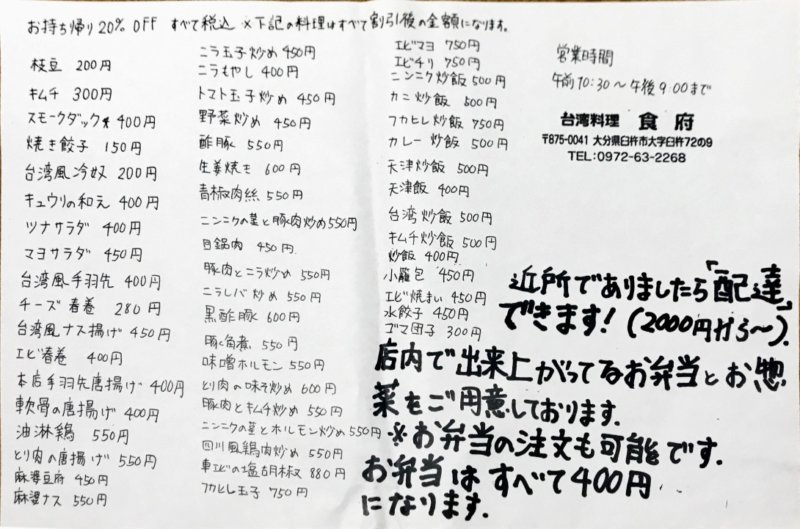 お持ち帰り20% OFF すべて税込 ※下記の料理はすべて割引後の金額になります。
枝豆 200円
キムチ 300円
スモークダック 400円
焼き餃子 150円
台湾風冷奴 200円
キュウリの和え 400円
ツナサラダ 400円
マヨサラダ 450円
台湾風手羽先 400円
チーズ春巻 280円
台湾風ナス揚げ 450円
エビ春巻 400円
本店手羽先唐揚げ 400円
軟骨の唐揚げ 400円
油淋鶏 550円
とり肉の唐揚げ 550円
麻婆豆腐 450円
麻婆ナス 550円
ニラ玉子炒め 450円
ニラもやし 400円
トマト玉子炒め 450円
野菜炒め 450円
酢豚 550円
生姜焼き 600円
青椒肉絲 550円
ニンニクの茎と豚肉炒め 550円
回鍋肉 450円
豚肉とニラ炒め 550円
ニラレバ炒め 550円
黒酢豚 600円
豚く角煮 550円
味噌ホルモン 550円
とり肉の味そ炒め 600円
豚肉とキムチ炒め 550円
ニンニクの茎とホルモン炒め 550円
四川風鶏肉炒め 550円
車エビの塩胡椒 880円
フカヒレ玉子 750円
エビマヨ 750円
エビチリ 750円
ニンニク炒飯 500円
カニ炒飯 500円
フカヒレ炒飯 750円
カレー炒飯 500円
天津炒飯 500円
天津飯 400円
台湾炒飯 500円
キムチ炒飯 500円
炒飯 400円
小籠包 450円
エビ焼まい 450円
水餃子 450円
ゴマ団子 300円
営業時間
午前10:30～午後9:00まで
台湾料理 食府
〒875-0041 大分県臼杵市大字臼杵72の9
TEL:0972-63-2268
近所でありましたら「配達」
できます!(2000円から～)
店内で出来上がってるお弁当とお惣
菜をご用意しております.
※お弁当の注文も可能です.
お弁当はすべて400円
になります.